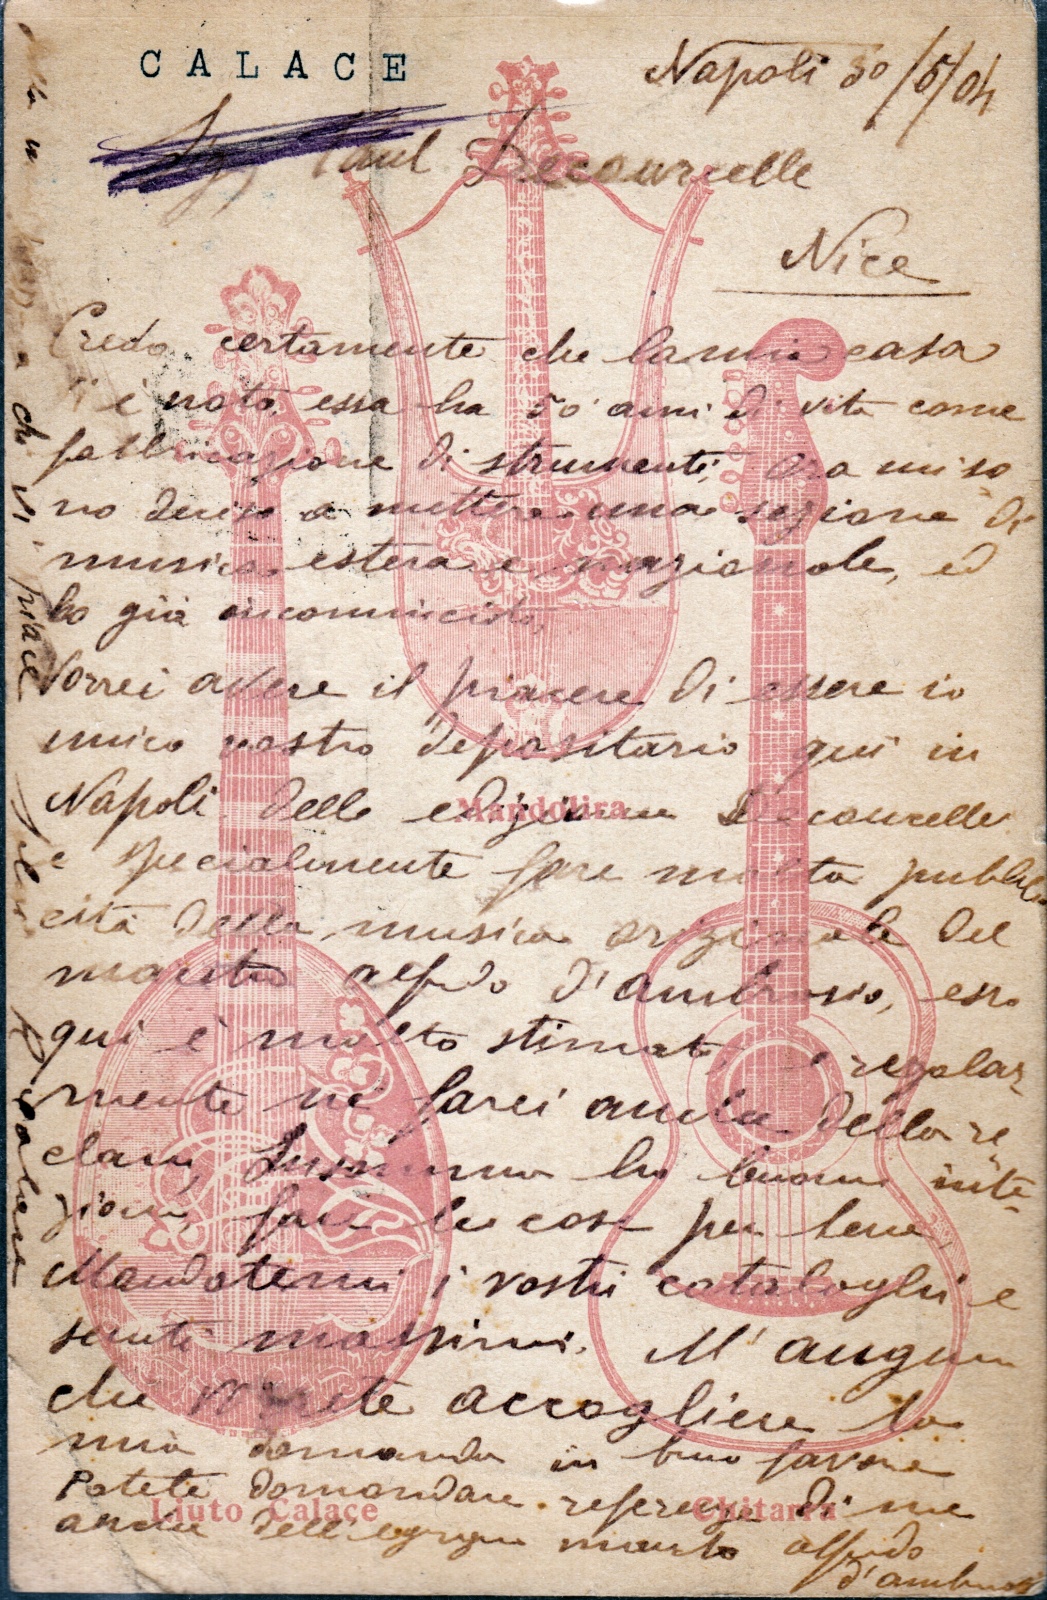 CALACE
Napoli 30/5/04
Sig. Paul Decourcelle
Nice
Credo certamente che la mia casa
Vi è noto, essa ha 50 anni di vita come
fabbricazione di strumenti, ora mi so
no deciso a mettere una sezione di
musica estera e nazionale, ed
ho già incominciato,
Vorrei avere il piacere di essere io
unico vostro depositario qui in
Napoli delle edizioni Decourcelle
e specialmente fare molta pubbli
cità della musica originale del
maestro alfredo d'ambrosio, esso
qui è molto stimato, e regolar
mente ne farei anche della re
clam, Insomma ho buone inte
zioni, fare le cose per bene,
Mandatemi i vostri cataloghi e
sconti massimi. M'auguro
che vorrete accogliere la
mia domanda in buon favore
Potete domandare referenze di me
anche dell'egregio maestro alfredo
d'ambrosio
che vi piace
Calace
Mandolira
Liuto Calace
Chitarra